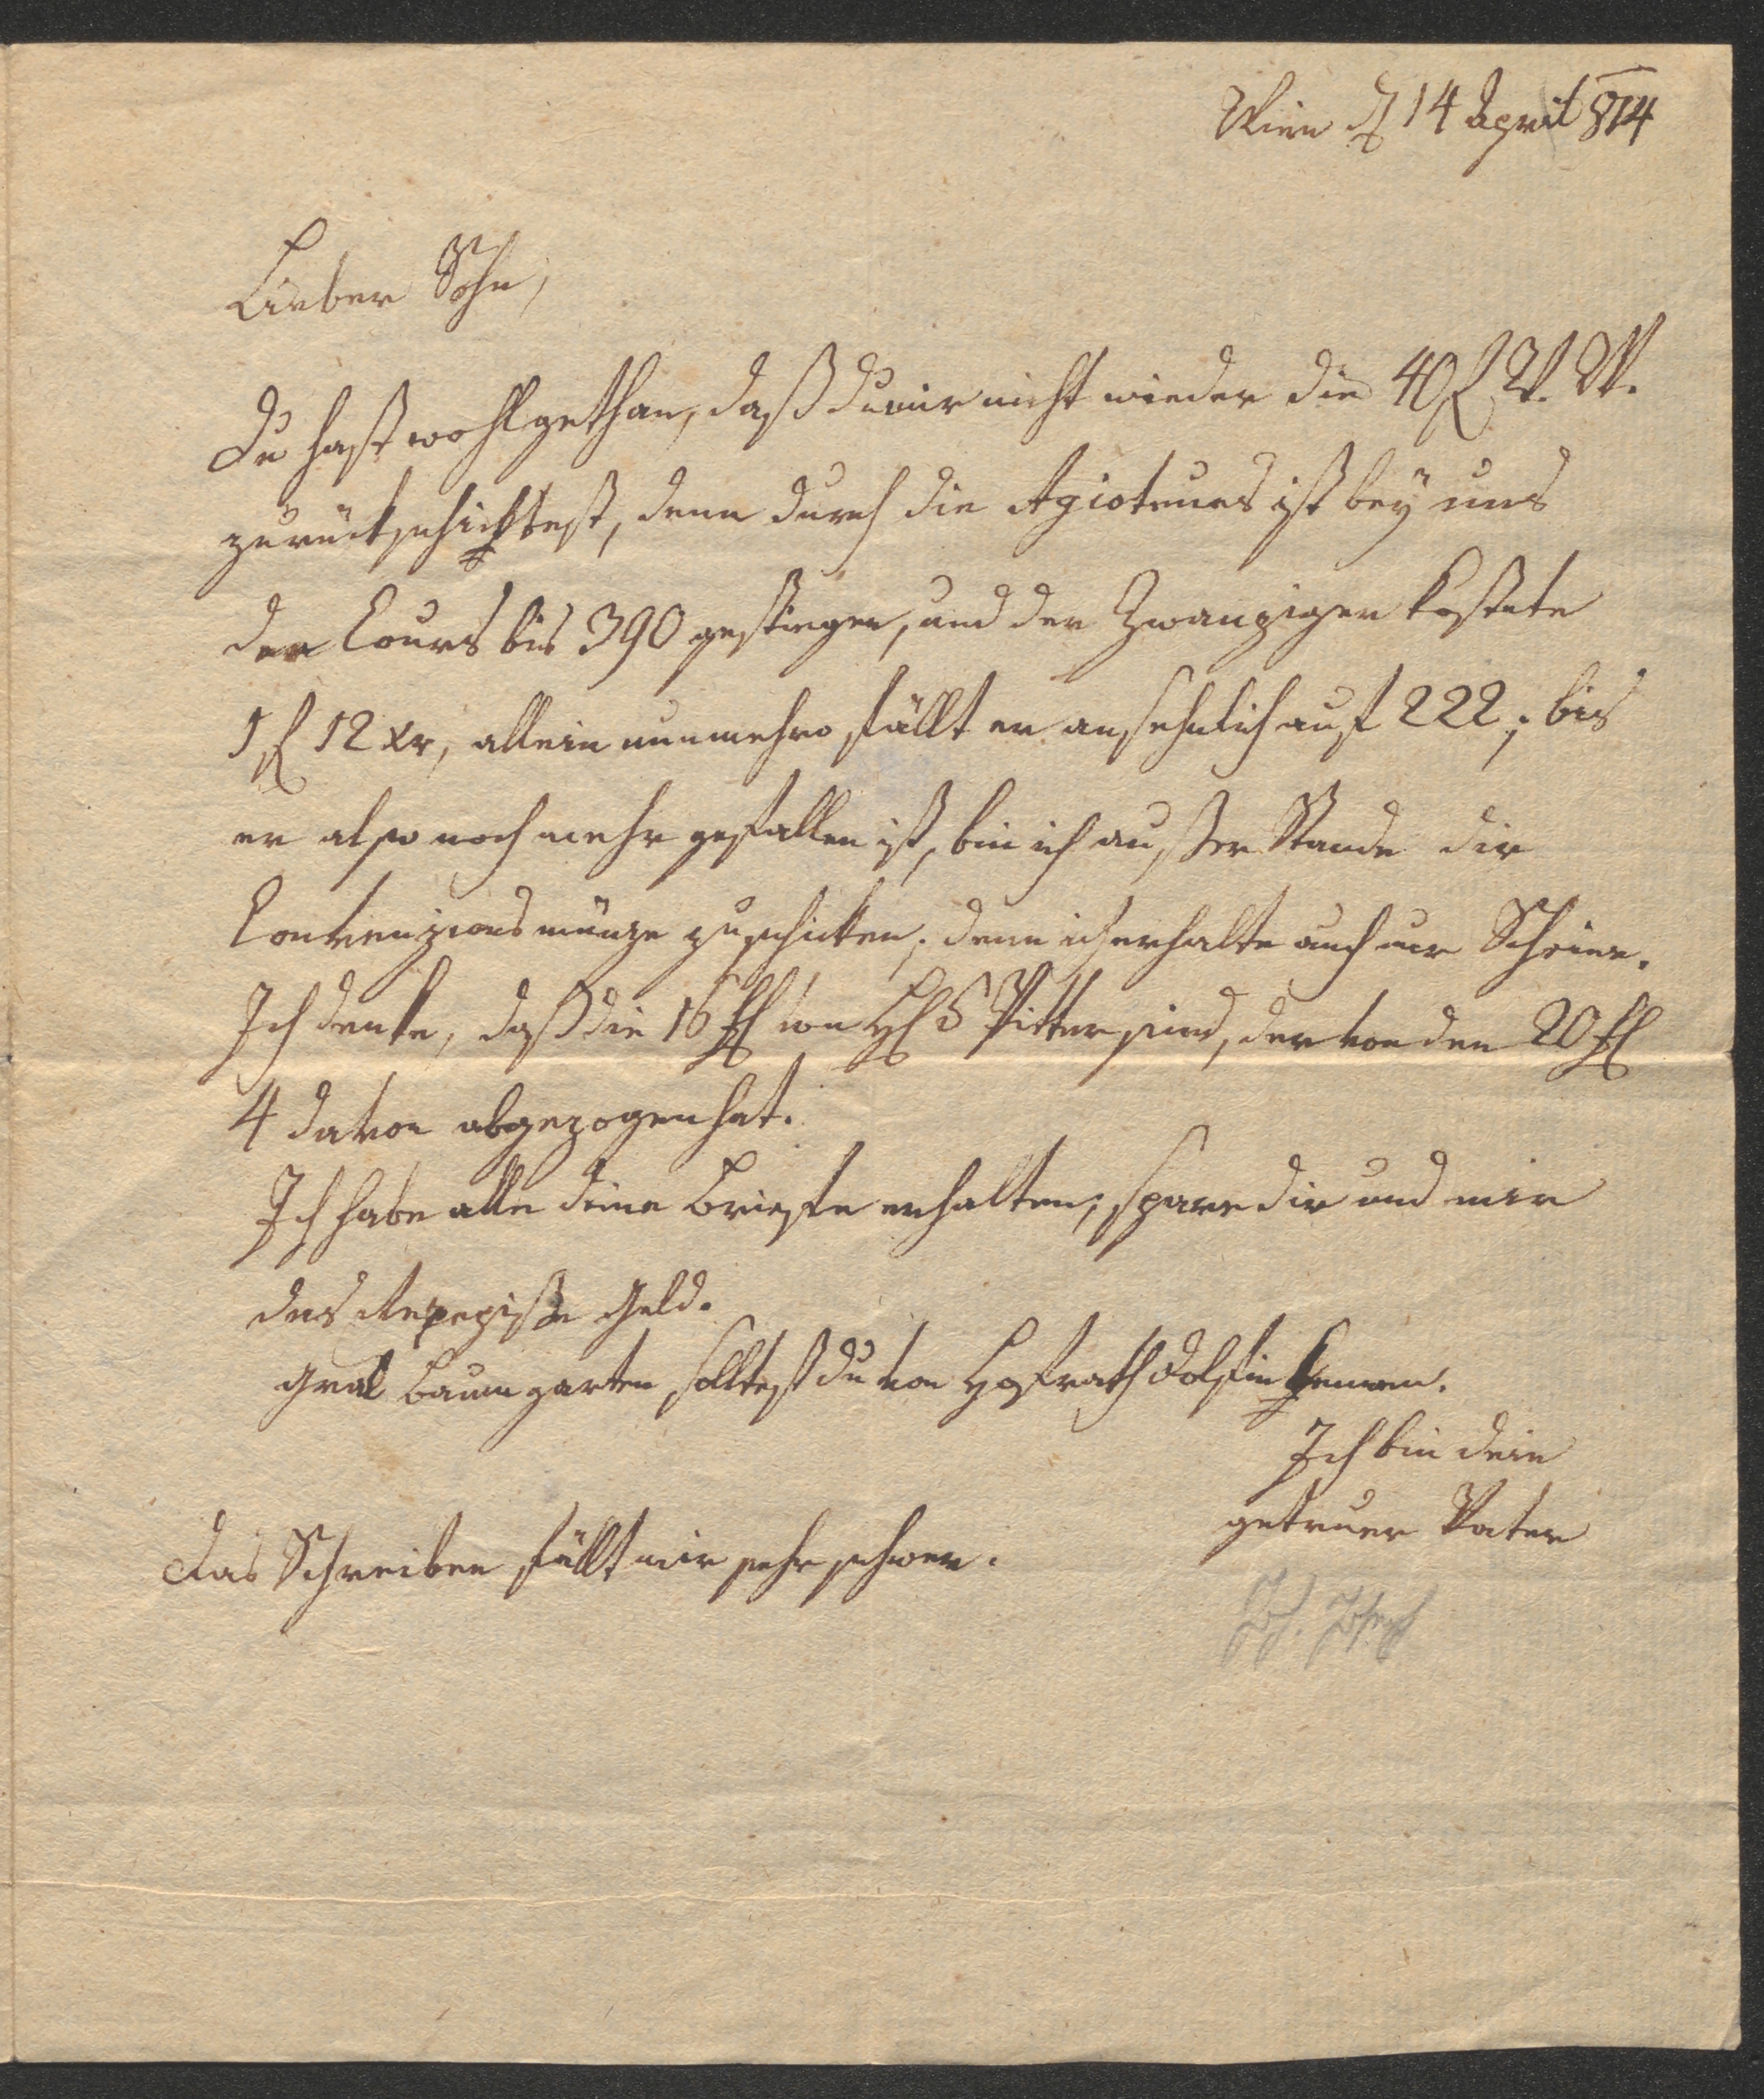 Wien d 14 April 814
Lieber Sohn,
Du hast wohlgethan, daß du mir nicht wieder die 40 f W. W.
zurückschicktest, denn durch die Agioteurs ist bey uns
der Cours bis 390 gestiegen, und der Zwanziger kostete
1 f 12 xr, allein nunmehro fällt er ansehnlich auf 222; bis
er also noch mehr gefallen ist, bin ich außer Stande dir
Convenzionsmünze zuschicken; denn ich erhalte auch nur Scheine.
Ich denke, daß die 16 fl von H Pitter sind, der von den 20 fl
4 davon abgezogen hat.
Ich habe alle deine Briefe erhalten; spare dir und mir
das Rezepisse Geld.
Gral Baumgarten solltest du von Hofrath Dolfin kennen.
Ich bin dein
getreuer Vater
Das Schreiben fällt mir sehr schwer.
Joseph